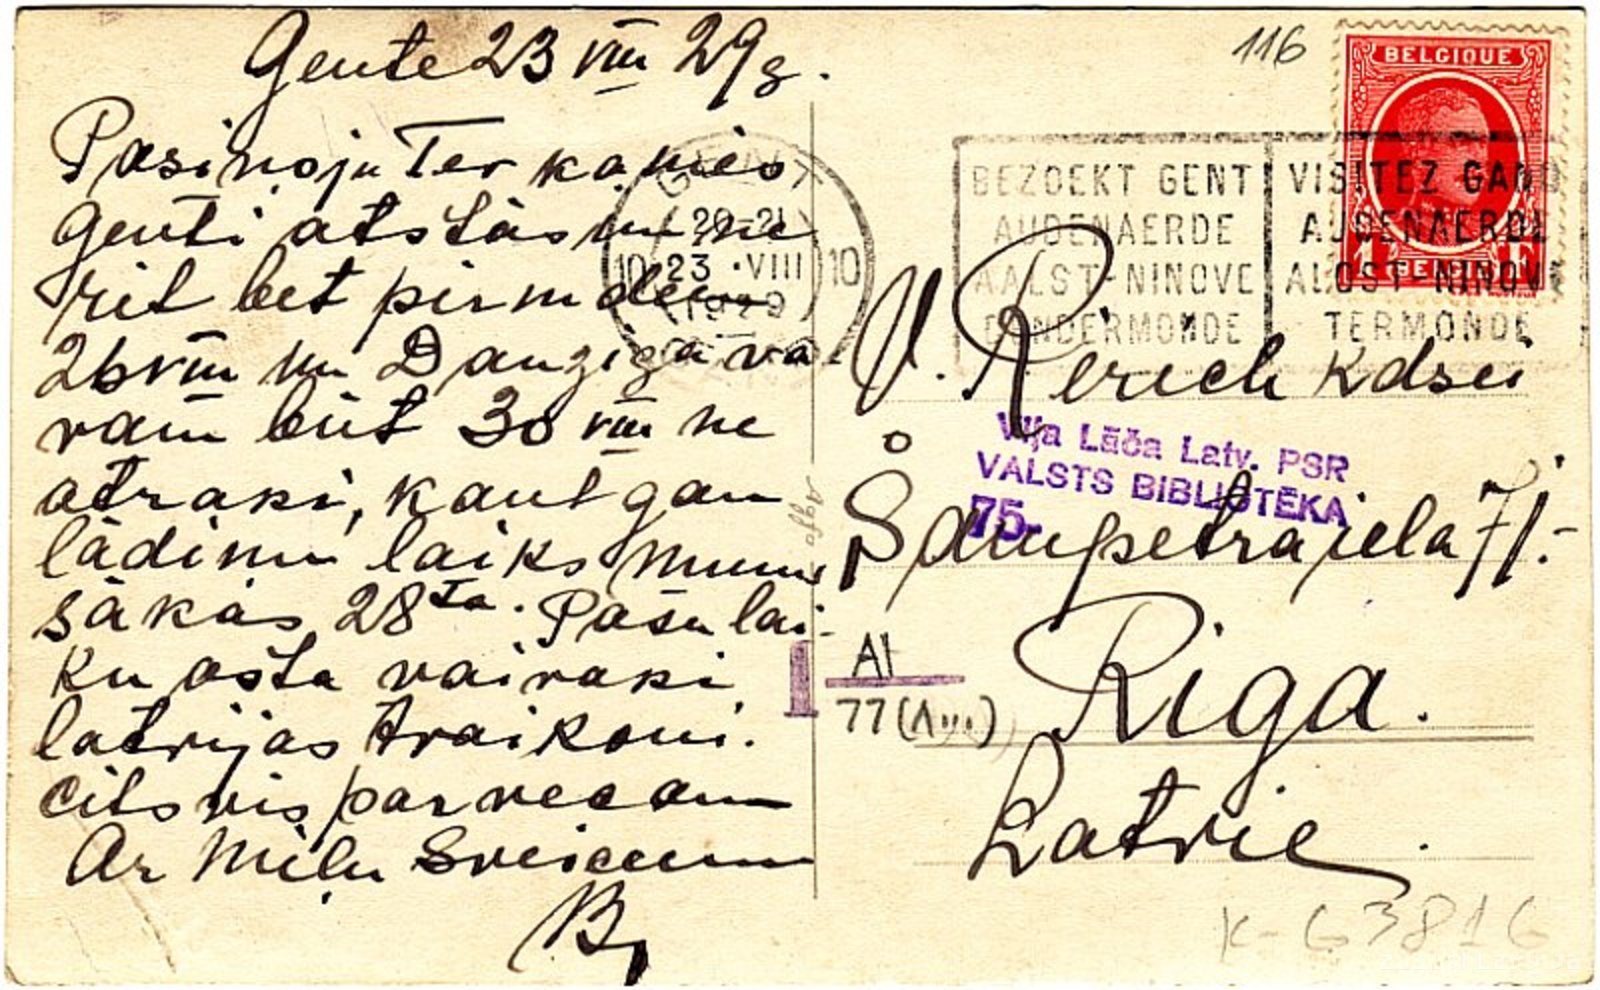 Gente 23 VIII 29g.
Pasinoju Tev ka mēs
Genti atstāsim ne
rīt bet pirmdien
26 VIII un Danzigā va
ram būt 30 VIII ne
atraki, kaut gan
lādiņu laiks mums
sākas 28 Ta. Pašu lai-
ku ostā vairaki
latvijas tvaikoņi.
cits vis par vecam
Ar Mīļu Sveicienu
B.
116
BELGIQUE
BELGIË
GENT
20-21
10 23 ·VIII 10
1929
BEZOEKT GENT
AUDENAERDE
AALST-NINOVE
DENDERMONDE
VISITEZ GAND
AUDENAERDE
ALOST-NINOVE
TERMONDE
V. Rerich kdzei
Vija Lāča Latv. PSR
VALSTS BIBLIOTĒKA
75-
Sampetra iela 71.-
Riga.
Latvie.
1
A1
77
Agfa
K-63816